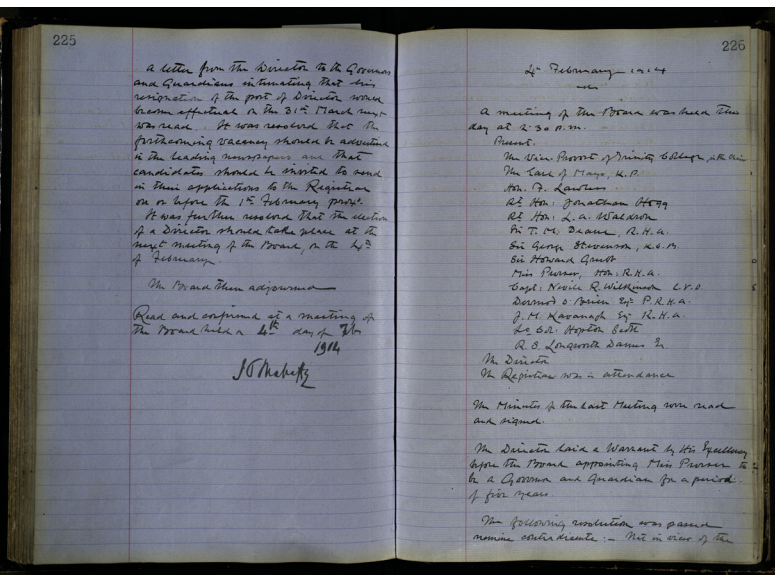 225
A letter from the Director to the Governors
and Guardians intimating that his
resignation of the post of Director would
become effectual on the 31st March next
was read. It was resolved that the
forthcoming vacancy should be advertised
in the leading newspapers and that
candidates should be invited to send
in their applications to the Registrar
on or before the 1st February proxo.
It was further resolved that the election
of a Director should take place at the
next meeting of the Board, on the 4th
of February.
The Board then adjourned
Read and confirmed at a meeting of
the Board held on 4th day of Feb
1914
J P Mahaffy
226
4th February 1914
A meeting of the Board was held this
day at 2.30 p.m.
Present.
The Vice Provost of Trinity College in the Chair
The Earl of Mayo, K.P.
Hon. F. Lawless
Rt Hon: Jonathan Hogg
Rt Hon: L. A. Waldron
Sir T. M. Deane, R.H.A.
Sir George Stevenson, K.C.B.
Sir Howard Grubb
Miss Purser, Hon: R.H.A.
Capt: Nevile R. Wilkinson C.V.O.
Dermod O'Brien Esq P.R.H.A.
J. M. Kavanagh Esq R.H.A.
Lt Col: Hopton Scott
R. E. Longworth Dames Esq
The Director
The Registrar was in attendance
The Minutes of the last Meeting were read
and signed.
The Director laid a Warrant by His Excellency
before the Board appointing Miss Purser to
be a Governor and Guardian for a period
of five years.
The following resolution was passed
nemine contradicente: - That in view of the